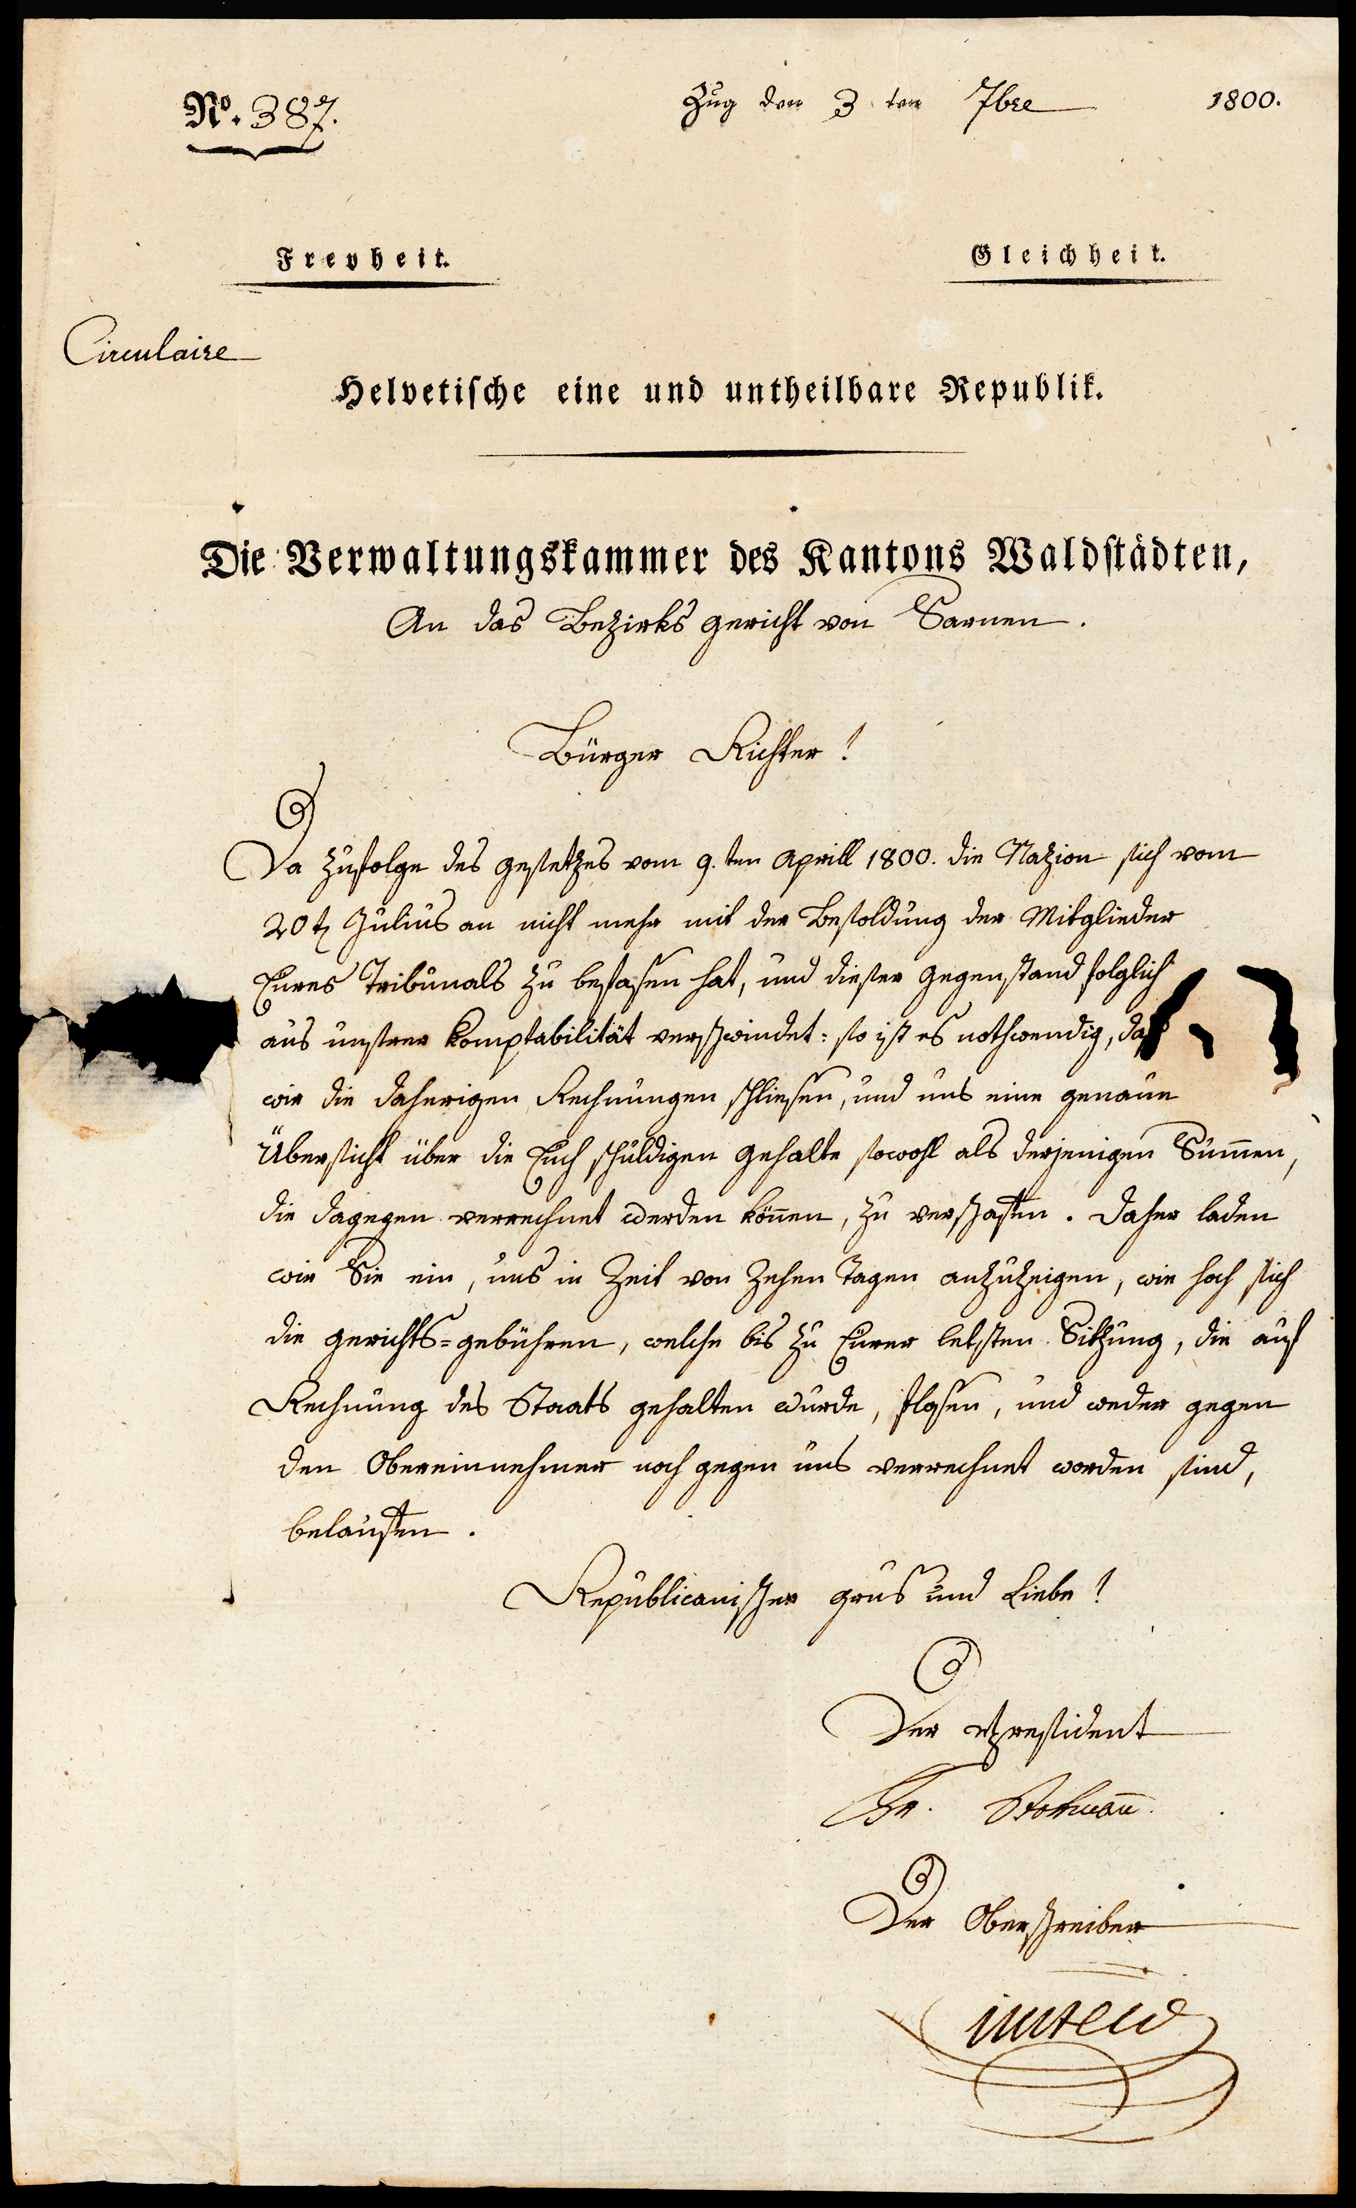 No. 387.
Zug den 3 ten 7bre 1800.
Freyheit.
Gleichheit.
Circulaire
Helvetische eine und untheilbare Republik.
Die Verwaltungskammer des Kantons Waldstädten,
An das Bezirks gericht von Sarnen.
Bürger Richter!
Da zufolge des gesetzes vom 9.ten Aprill 1800. die Nazion sich vom
20t Julius an nicht mehr mit der Besoldung der Mitglieder
Eures Tribunals zu befassen hat, und dieser Gegenstand folglich
aus unsrer Komptabilität verschwindet: so ist es nothwendig, daß
wir die daherigen Rechnungen schliesen, und uns eine genaue
Übersicht über die Euch schuldigen Gehalte sowohl als derjenigen Sum̅en,
die dagegen verrechnet werden kön̅en, zu verschaffen. Daher laden
wir Sie ein, uns in Zeit von Zehen Tagen anzuzeigen, wie hoch sich
die gerichts=gebühren, welche bis zu Eurer letsten Sitzung, die auf
Rechnung des Staats gehalten wurde, flossen, und weder gegen
den Obereinnehmer noch gegen uns verrechnet worden sind,
belauffen.
Republicanischer grus und Liebe!
Der President
Der Oberschreiber